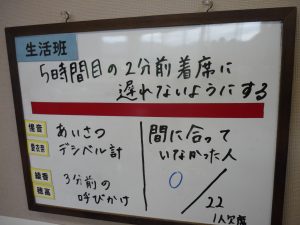 生活班
5時間目の2分前着席に
遅れないようにする
あいさつ
デシベル計
3分前の
呼びかけ
間に合って
いなかった人
0/22
1人欠席